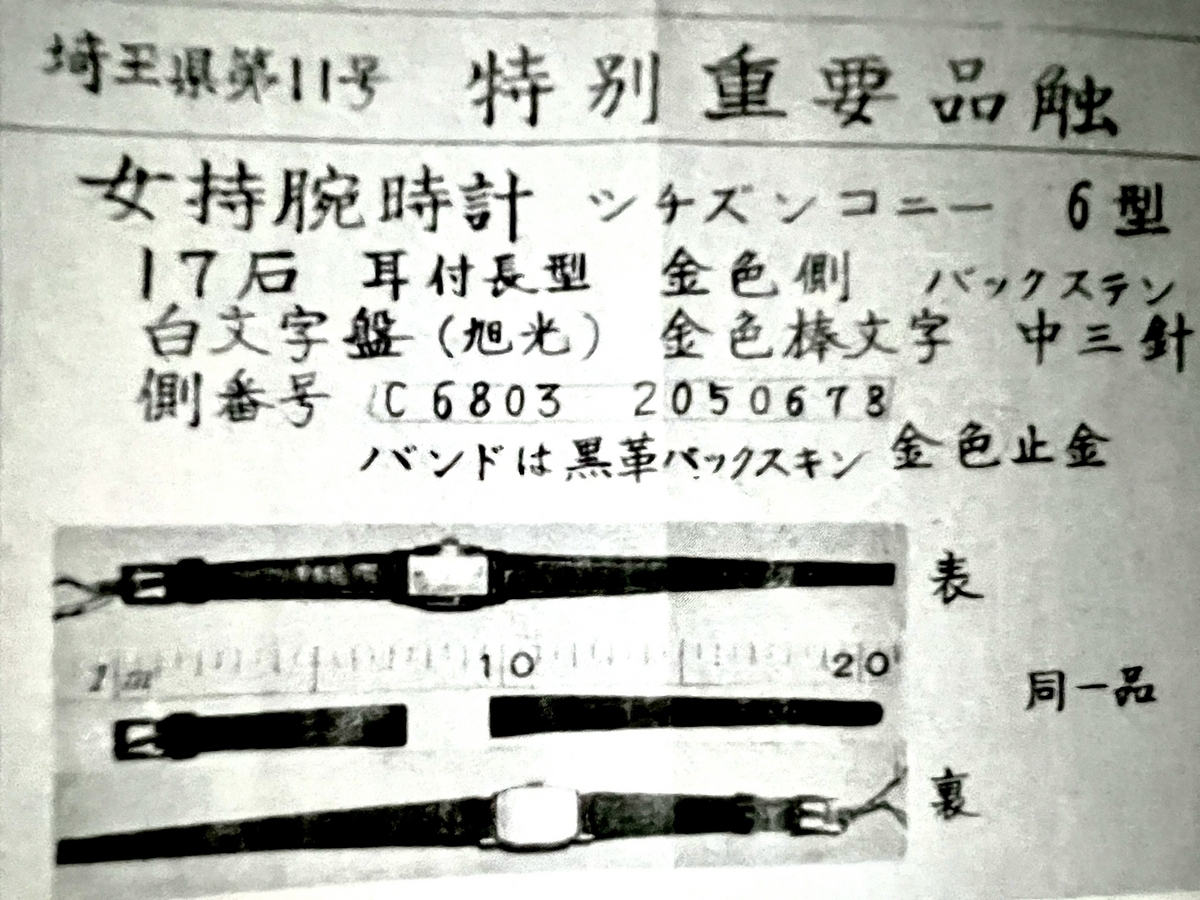 埼玉県第11号 特別重要品触
女持腕時計 シチズンコニー 6型
17石 耳付長型 金色側 バックステン
白文字盤(旭光) 金色棒文字 中三針
側番号 C6803 2050678
バンドは黒革バックスキン 金色止金
表
1m 10 20
同一品
裏